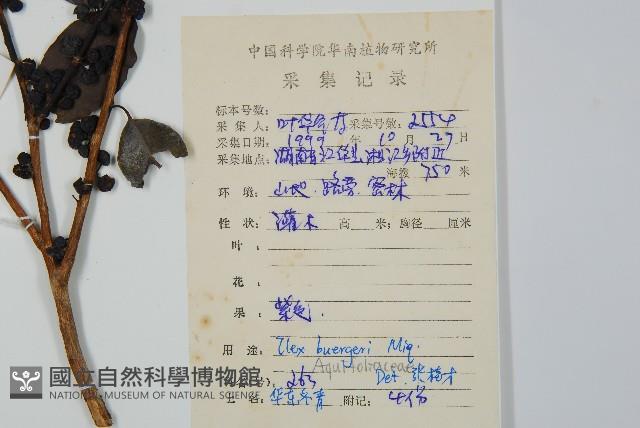 中国科学院华南植物研究所
采集记录
标本号数:
采集人: 叶华谷 采集号数: 2554
采集日期: 1999 年 10 月 29 日
采集地点: 湖南省江华县湘江乡附近
海拔 750 米
环境: 山地. 路旁. 密林
性状: 灌木 高 米; 胸径 厘米
叶:
花:
果: 紫色.
用途: Ilex buergeri Miq.
Aquifoliaceae
263 Det. 张梅才
名: 华东冬青 附记: 4份
國立自然科學博物館
NATIONAL MUSEUM OF NATURAL SCIENCE